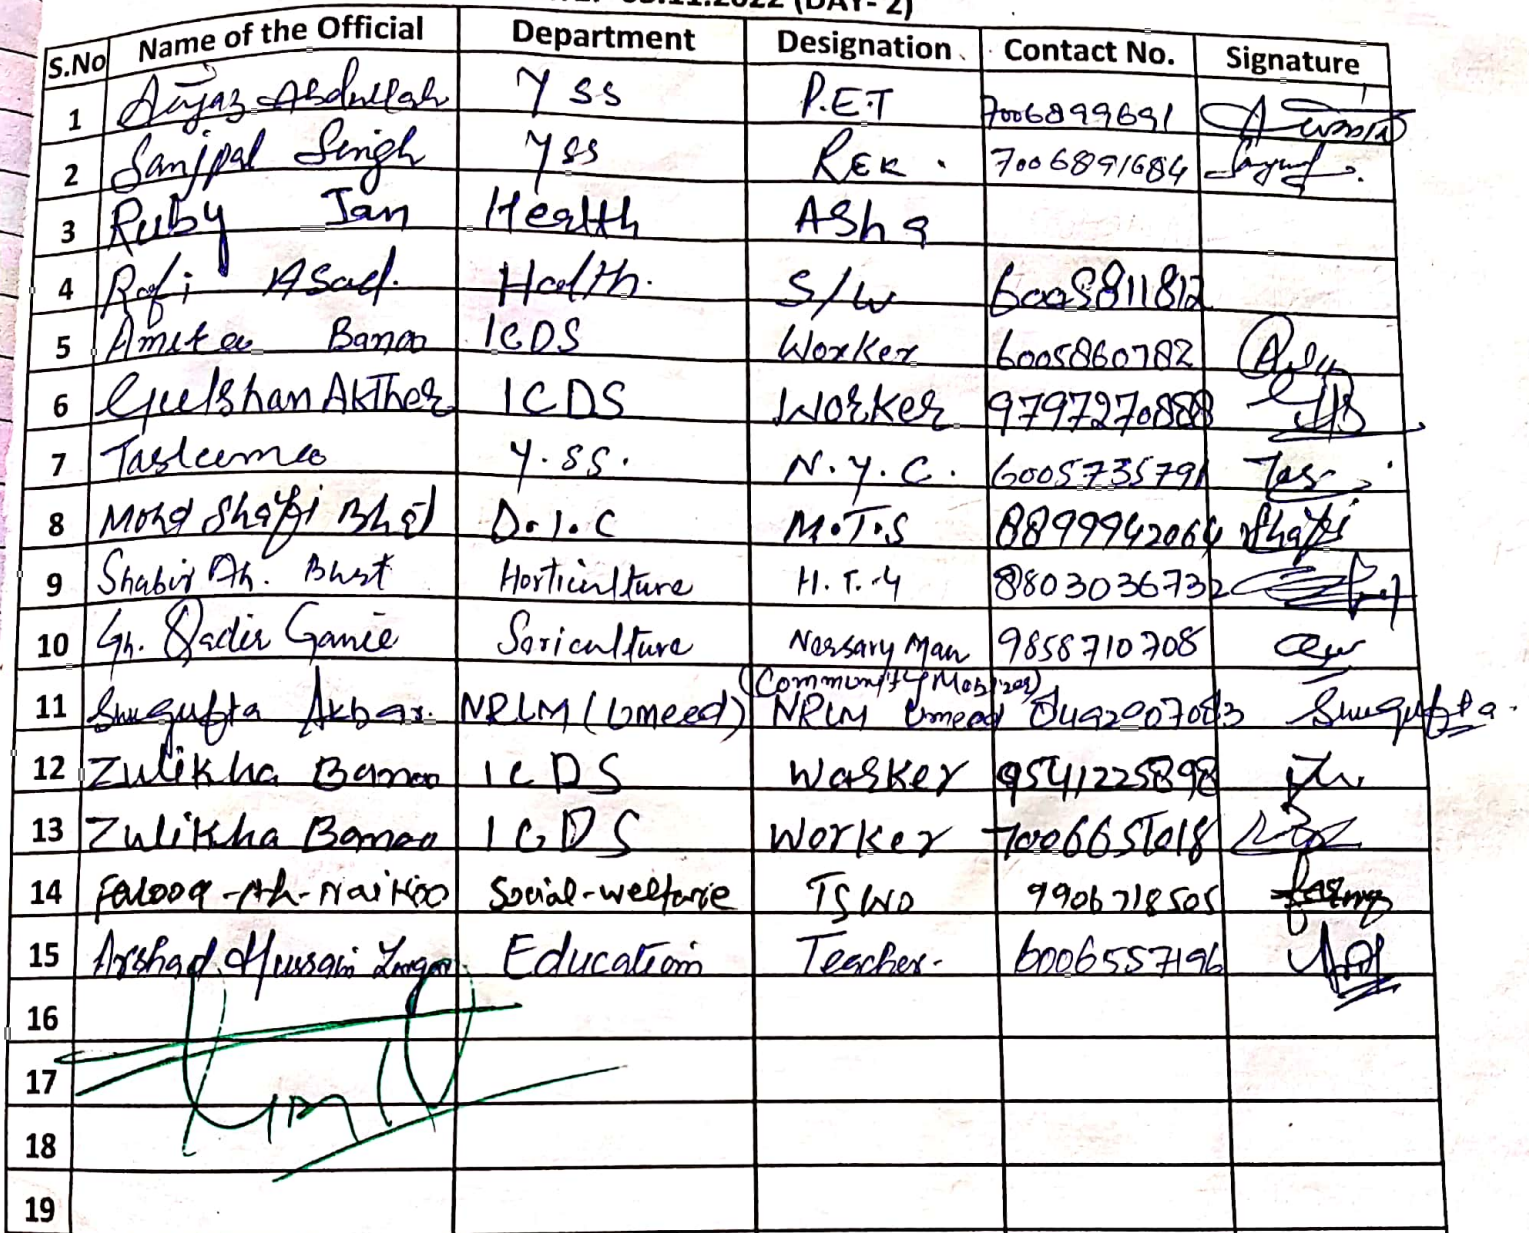 (DAY- 2)
S.No Name of the Official Department Designation Contact No. Signature
1 Aijaz Abdullah YSS P.E.T 7006899691
2 Sanjpal Singh YSS REK. 7006891684
3 Ruby Jan Health ASha
4 Rafi Asad. Health. S/W 6005811812
5 Banoo ICDS Worker 6005860782
6 Gulshan AKTher ICDS Worker 9797270888
7 Tasleema Y.SS. N.Y.C. 6005735791 Tas
8 Mohd Shafi Bhat D.I.C M.T.S 8899942064 Shafi
9 Shabir Ah. Bhat Horticulture H.T.-4 8803036732
10 Gh. Qadir Ganie Soriculture Norsary Man 9858710708
(Community Mobizer)
11 Shugufta Akbar. NRLM (Umeed) NRLM Umeed Shugufta
12 Zulikha Banoo ICDS Worker 9541225898
13 Zulikha Banoo ICDS Worker
14 Farooq-Ah-Naikoo Social-welfare TSWO 9906718505
15 Arshad Hussain Education Teacher. 6006557196
16
17
18
19